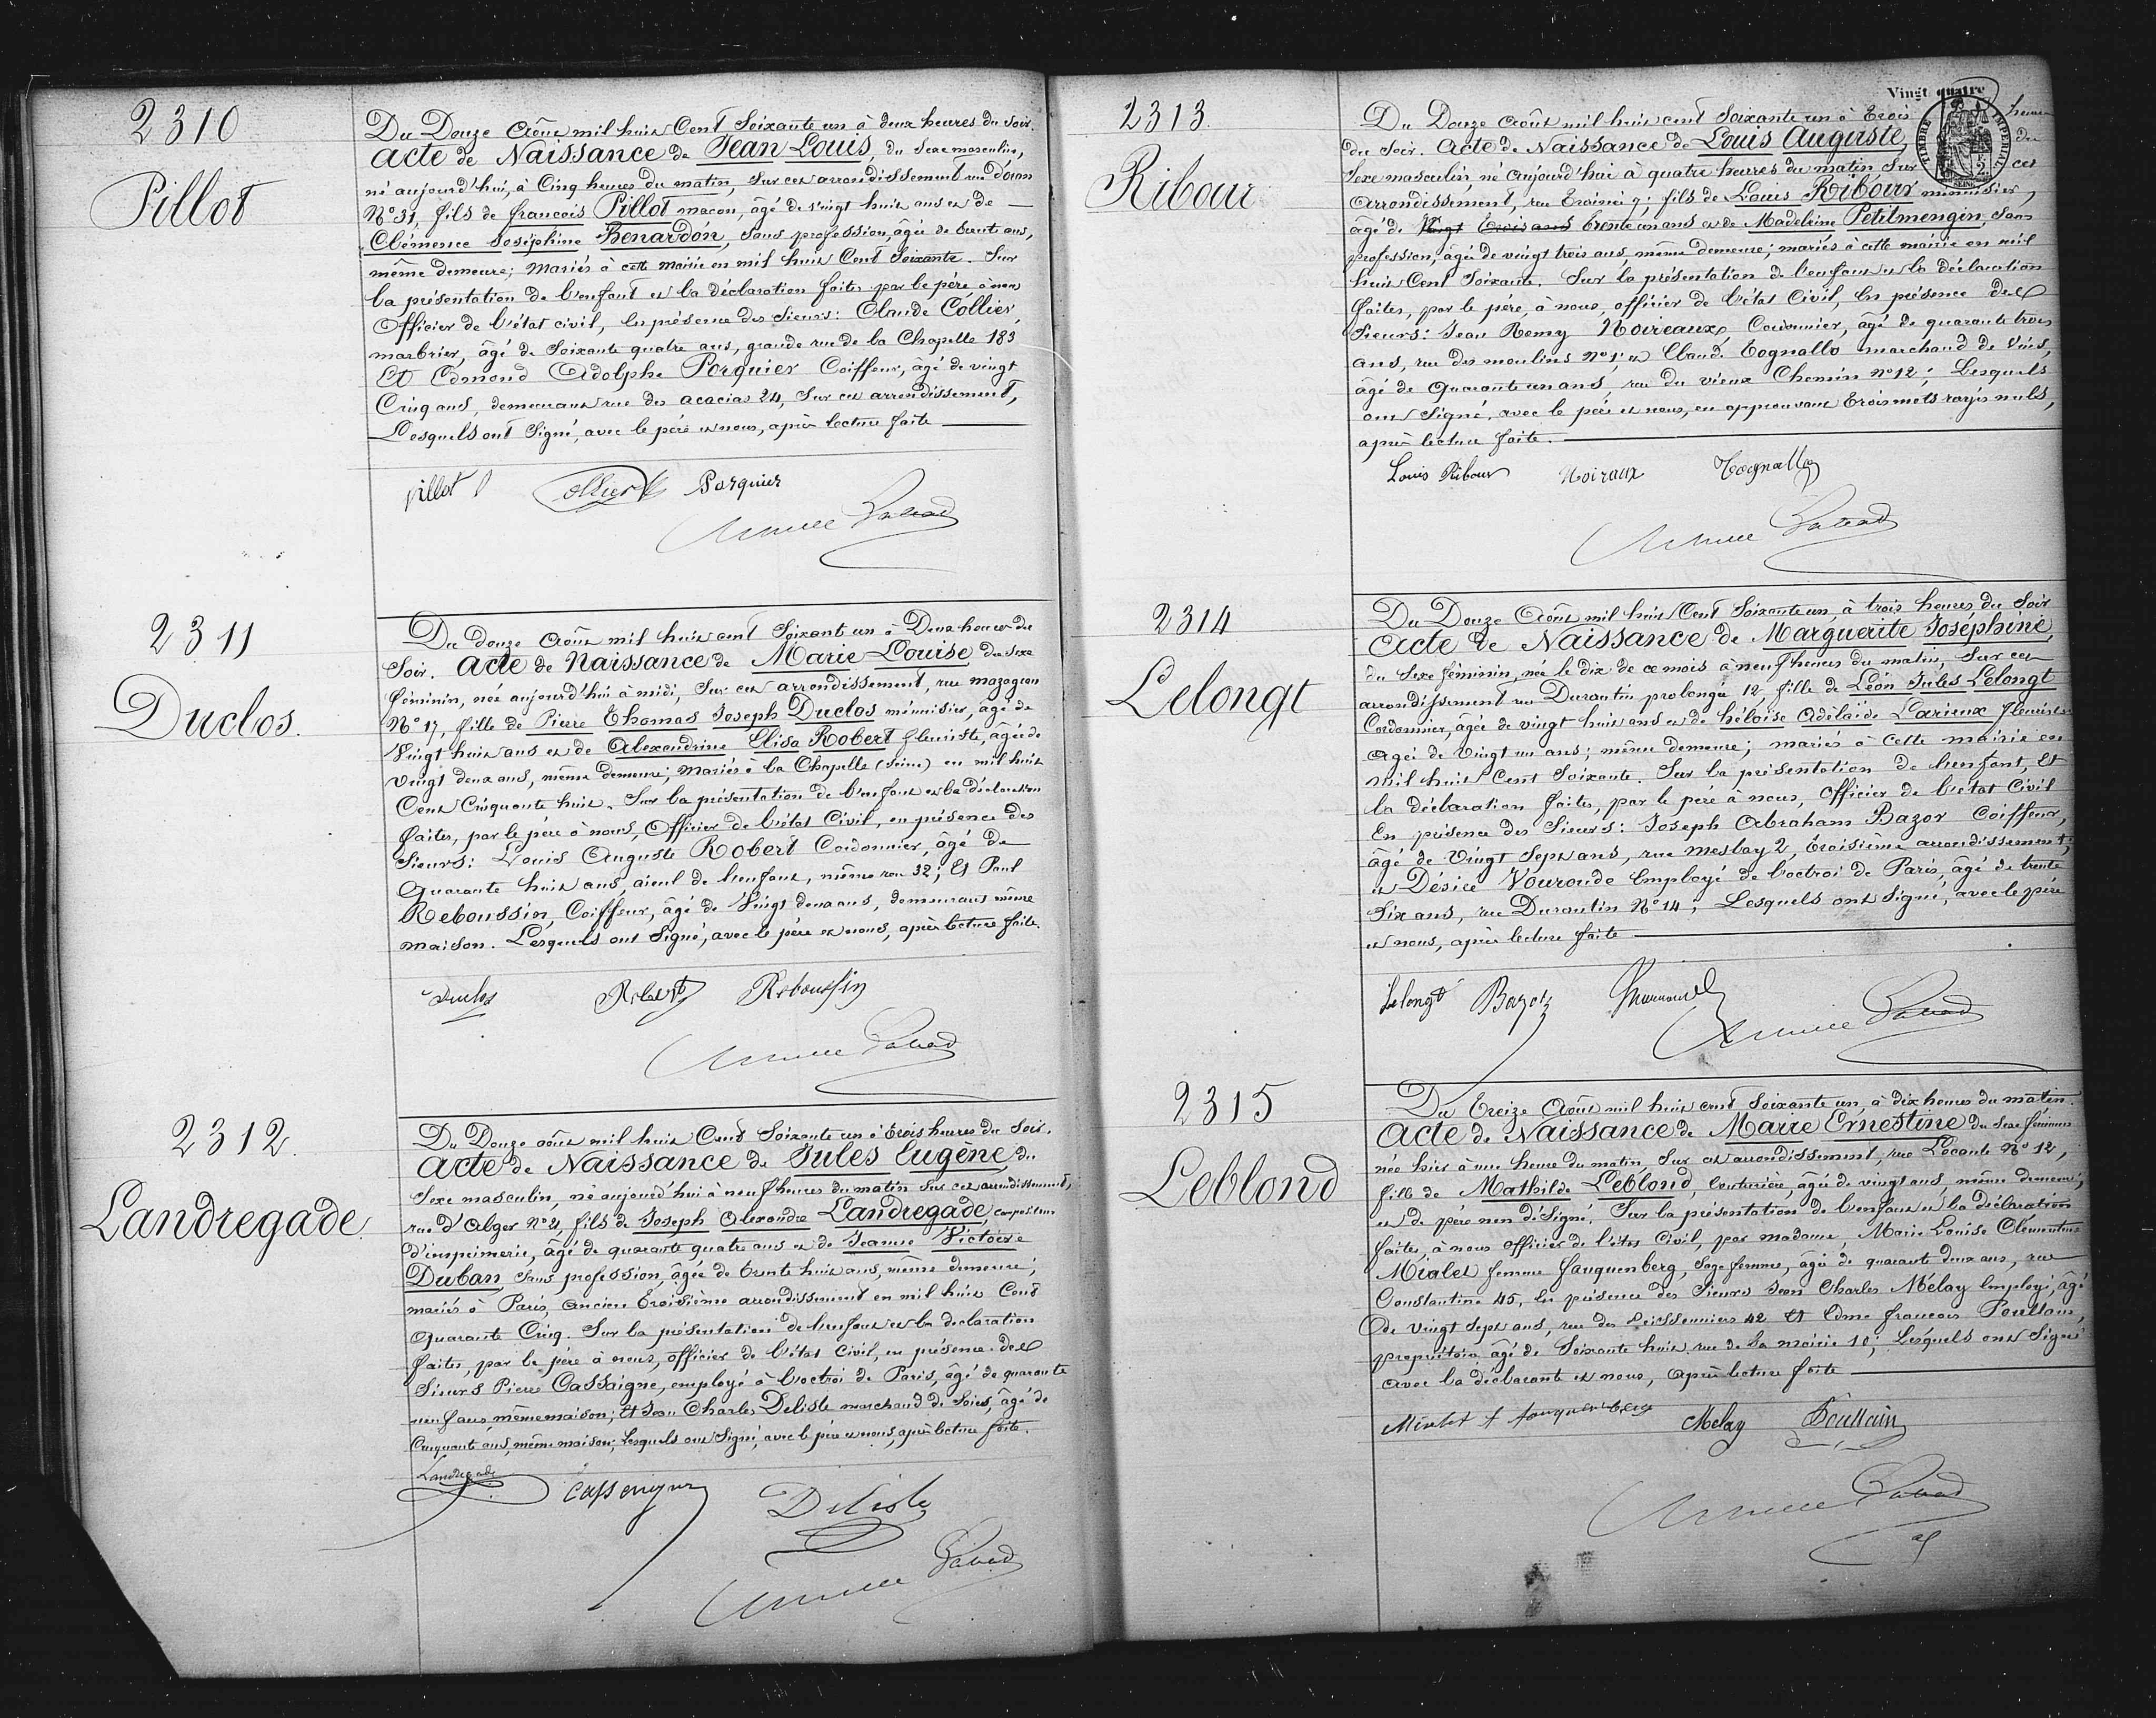 2310
Pillot
Du Douze Août mil huit Cent Soixante un à deux heures du Soir.
Acte de Naissance de Jean Louis, du Sexe masculin,
né aujourd'hui, à Cinq heures du matin, Sur cet arrondissement rue d'oran
N° 31, fils de françois Pillot maçon, âgé de vingt huit ans et de
Clémence Joséphine Benardon, Sans profession, âgée de trente ans,
même demeure; Mariés à cette mairie en mil huit Cent Soixante. Sur
la présentation de l'enfant et la déclaration faites par le père à nous
Officier de l'état civil, en présence des Sieurs: Claude Collier,
marbrier, âgé de Soixante quatre ans, grande rue de la Chapelle 183
Et Edmond Adolphe Porquier Coiffeur, âgé de vingt
Cinq ans, demeurant rue des acacias 24, Sur cet arrondissement,
Lesquels ont Signé, avec le père et nous, après lecture faite
pillot Collier Porquier
2311
Duclos.
Du douze Août mil huit cent Soixant un à Deux heures du
Soir. Acte de Naissance de Marie Louise du Sexe
féminin, née aujourd'hui à midi, Sur cet arrondissement, rue mazagran
N° 17, fille de Pierre Thomas Joseph Duclos ménuisier, âgé de
Vingt huit ans et de Alexandrine Elisa Robert fleuriste, âgée de
vingt deux ans, même demeure; Mariés à la Chapelle (Seine) en mil huit
Cent Cinquante huit. Sur la présentation de l'enfant et la déclaration
faites, par le père à nous, Officier de l'état Civil, en présence des
Sieurs: Louis Auguste Robert Cordonnier, âgé de
Quarante huit ans, aieul de l'enfant, même rue 32; Et Paul
Reboussin, Coiffeur, âgé de Vingt deux ans, demeurant même
maison. Lesquels ont Signé, avec le père et nous, après lecture faite.
Duclos Robert Reboussin
2312.
Landregade.
Du Douze août mil huit Cent Soixante un à trois heures du Soir.
Acte de Naissance de Jules Eugène, du
Sexe masculin, né aujourd'hui à neuf heures du matin Sur cet arrondissement,
rue d'Alger N° 4, fils de Joseph Alexandre Landregade, compositeur
d'imprimerie, âgé de quarante quatre ans et de Jeanne Victoire
Duban, Sans profession, âgée de trente huit ans, même demeure;
mariés à Paris, ancien troisième arrondissement en mil huit Cent
Quarante Cinq. Sur la présentation de l'enfant et la déclaration
faites, par le père à nous, officier de l'état Civil, en présence des
Sieurs Pierre Cassaigne, employé à l'octroi de Paris, âgé de quarante
neuf ans même maison; Et Jean Charles Delisle marchand de Soies, âgé de
Cinquante ans, même maison; Lesquels ont Signé, avec le père et nous, après lecture faite.
Landregade Cassaigne Delisle
Vingt quatre
TIMBRE IMPERIAL
SEINE
2313.
Ribour
Du Douze Août mil huit cent Soixante un à trois heures
du Soir. Acte de Naissance de Louis Auguste, du
Sexe masculin, né aujourd'hui à quatre heures du matin Sur cet
Arrondissement, rue 9; fils de Louis Ribour menuisier,
âgé de Vingt trois ans trente un ans et de Madeleine Petitmengin, Sans
profession, âgée de vingt trois ans, même demeure; mariés à cette mairie en mil
huit Cent Soixante. Sur la présentation de l'enfant et la déclaration
faites, par le père, à nous, officier de l'état Civil, En présence des
Sieurs: Jean Remy Noireaux, Cordonnier, âgé de quarante trois
ans, rue des moulins N° 1; et Claude Tognallo marchand de Vins,
âgé de Quarante un ans, rue du vieux Chemin N° 12; Lesquels
ont Signé, avec le père et nous, en approuvant trois mots rayés nuls,
après lecture faite.
Louis Ribour Noiraux Tognallo
2314
Lelongt
Du Douze Août mil huit Cent Soixante un, à trois heures du Soir
Acte de Naissance de Marguerite Joséphine,
du Sexe féminin, née le dix de ce mois à neuf heures du matin, Sur cet
arrondissement rue Durantin prolongée 12, fille de Léon Jules Lelongt
Cordonnier, âgé de vingt huit ans et de héloïse Adélaïde Larieux fleuriste
Agée de Vingt un ans; même demeure; mariés à Cette mairie en
mil huit Cent Soixante. Sur la présentation de l'enfant, Et
la déclaration faites, par le père à nous, Officier de l'état Civil
En présence des Sieurs: Joseph Abraham Bazor Coiffeur,
âgé de Vingt Sept ans, rue Meslay 2, troisième arrondissement;
et Désiré Vouronde Employé de l'octroi de Paris, âgé de trente
Six ans, rue Durantin N° 14; Lesquels ont Signé, avec le père
et nous, après lecture faite
Lelongt Bazor
2315
Leblond
Du treize Août mil huit cent Soixante un, à dix heures du matin.
Acte de Naissance de Marie Ernestine du Sexe féminin
née hier à une heure du matin, Sur cet arrondissement, rue N° 12,
fille de Mathilde Leblond, Couturière, âgée de vingt ans, même demeure,
et de père non désigné. Sur la présentation de l'enfant et la déclaration
faites, à nous officier de l'état Civil, par madame, Marie Louise Clémentine
Mialet femme fauquenberg, Sage femme, âgée de quarante deux ans, rue
Constantine 45, En présence des Sieurs Jean Charles Mélay Employé, âgé
de vingt Sept ans, rue des Poissonniers 42 Et Edme françois Poullain,
propriétaire âgé de Soixante huit, rue de la mairie 10; Lesquels ont Signé
avec la déclarante et nous, Après lecture faite
Mialet f fauquenberg Melay Poullain